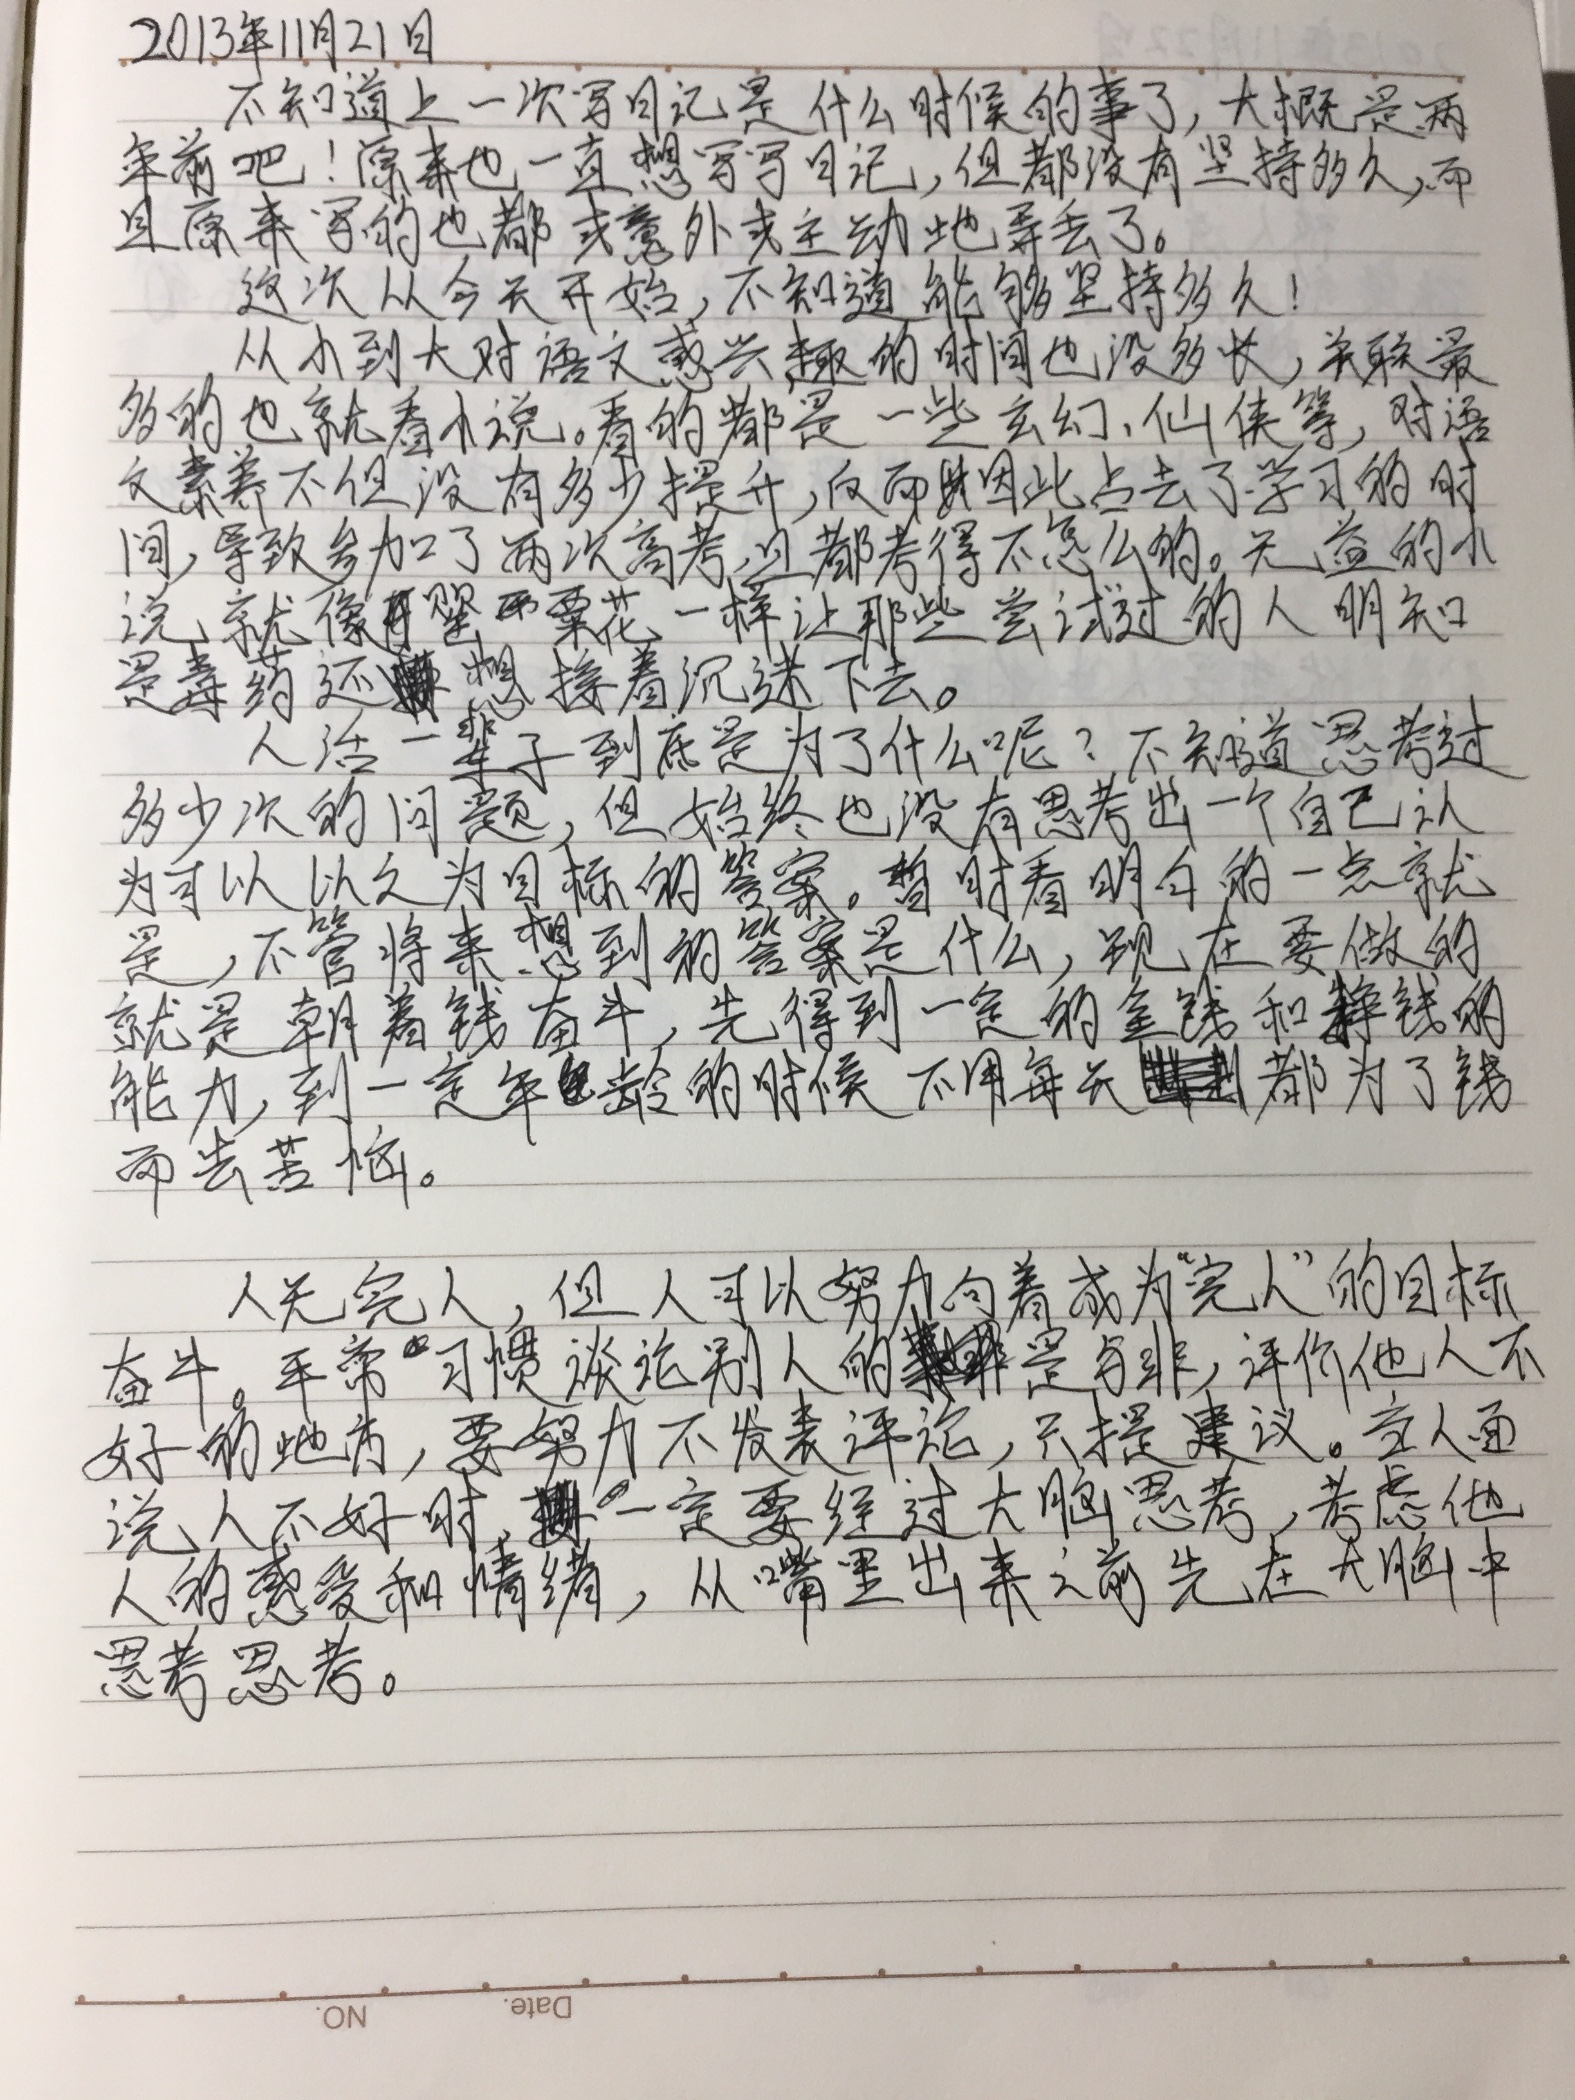 2013年11月21日
不知道上一次写日记是什么时候的事了,大概是两
年前吧!原来也一直想写写日记,但都没有坚持多久,而
且原来写的也都或意外或主动地弄丢了。
这次从今天开始,不知道能够坚持多久!
从小到大对语文感兴趣的时间也没多长,关联最
多的也就看小说。看的都是一些玄幻、仙侠等,对语
文素养不但没有多少提升,反而因此占去了学习的时
间,导致参加了两次高考,且都考得不怎么的。无益的小
说,就像罂粟花一样让那些尝试过的人明知
是毒药还想接着沉迷下去。
人活一辈子到底是为了什么呢?不知道思考过
多少次的问题,但始终也没有思考出一个自己认
为可以以之为目标的答案。暂时看明白的一点就
是,不管将来想到的答案是什么,现在要做的
就是朝着钱奋斗,先得到一定的金钱和挣钱的
能力,到一定年龄的时候不用每天都为了钱
而去苦恼。
人无完人,但人可以努力向着成为“完人”的目标
奋斗。平常习惯谈论别人的是与非,评价他人不
好的地方,要努力不发表评论,只提建议。当人面
说人不好时,一定要经过大脑思考,考虑他
人的感受和情绪,从嘴里出来之前先在大脑中
思考思考。
NO. Date.